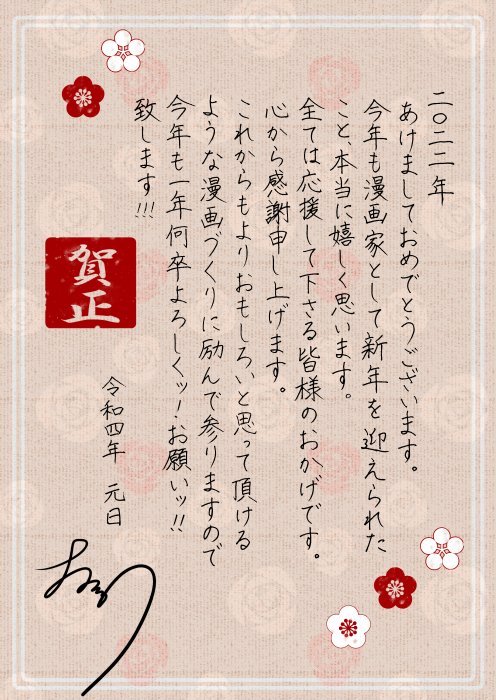 二〇二二年
あけましておめでとうございます。
今年も漫画家として新年を迎えられた
こと、本当に嬉しく思います。
全ては応援して下さる皆様のおかげです。
心から感謝申し上げます。
これからもよりおもしろいと思って頂ける
ような漫画づくりに励んで参りますので
今年も一年何卒よろしくッ!お願いッ!!
致します!!!
賀正
令和四年 元日